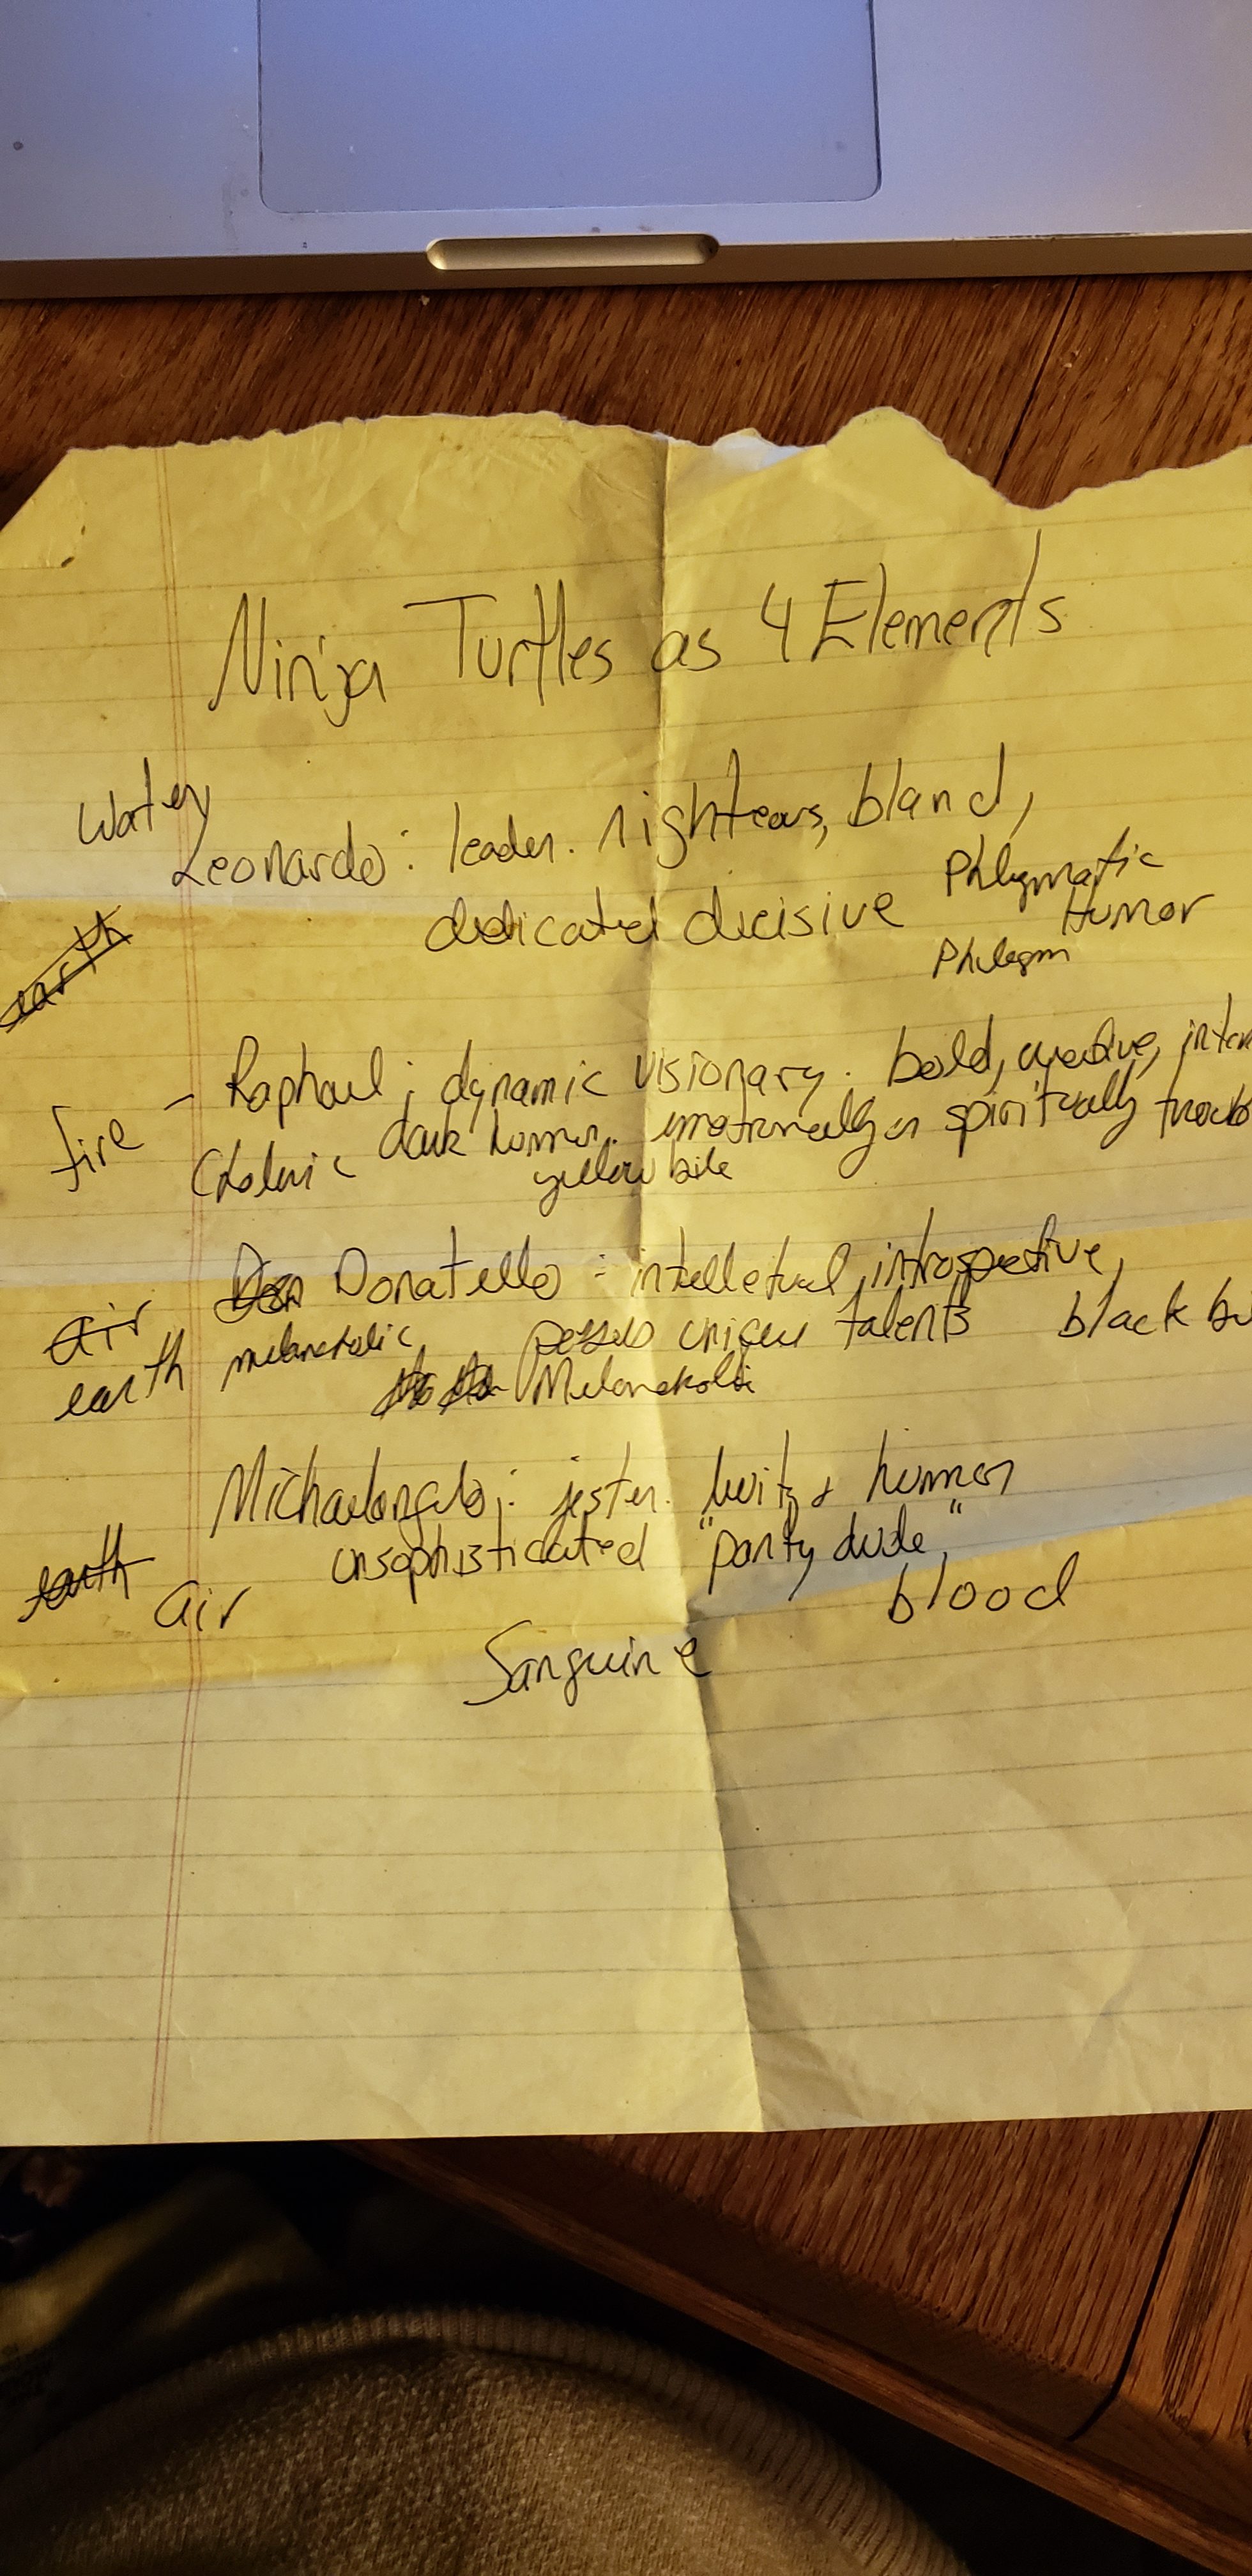 Ninja Turtles as 4 Elements
Water
Leonardo: leader. righteous, bland,
dedicated decisive
Phlegmatic
Humor
Phlegm
earth
fire - Raphael: dynamic visionary. bold, creative,
dark humor. emotionally or spiritually
Choleric
yellow bile
air Don Donatello: intelletual, introspective,
melancholic unique talents black
earth Melancholic
Michaelangelo: jester. levity & humor
unsophisticated "party dude,"
earth air
blood
Sanguine